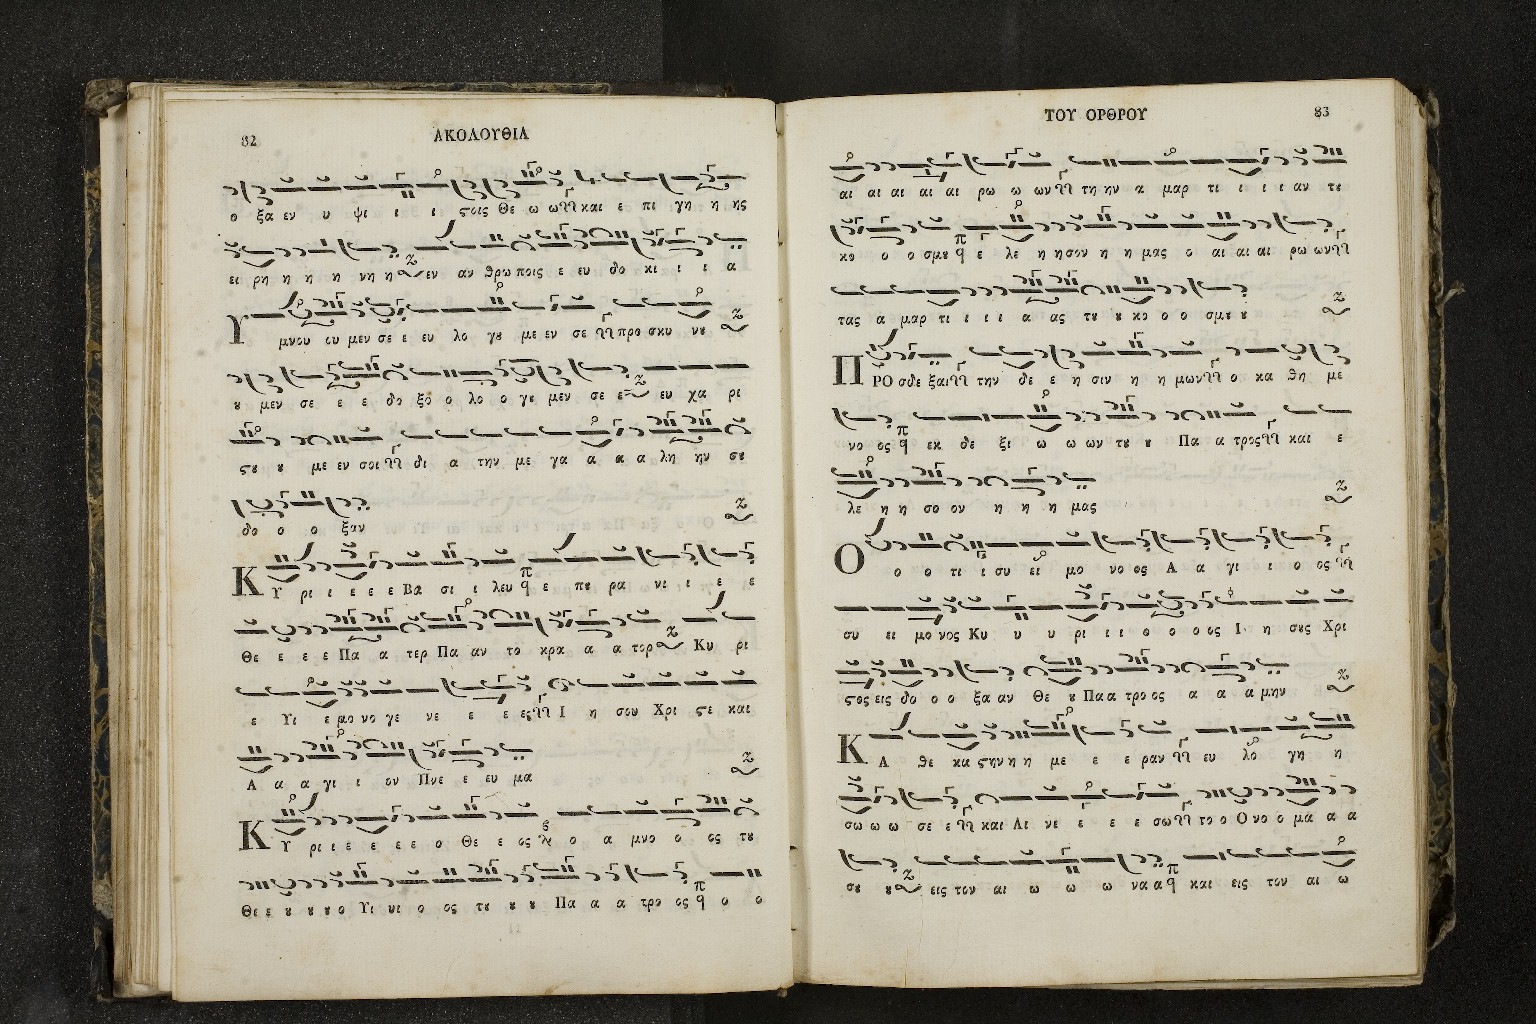 82
ΑΚΟΛΟΥΘΙΑ
ο ξα εν υ ψι ι ι ςοις Θε ω ω και ε πι γη η ης
ει ρη η η η νη η εν αν θρω ποις ε ευ δο κι ι ι α
Υ μνου ου μεν σε ε ευ λο γȣ με εν σε προ σκυ νȣ
ȣ μεν σε ε ε δο ξο ο λο ο γȣ μεν σε ε ευ χα ρι
ςȣ ȣ με εν σοι δι α την με γα α α α λη ην σȣ
δο ο ο ξαν
Κ Υ ρι ι ε ε ε Βα σι ι λευ ε πȣ ρα νι ι ε ε
Θε ε ε ε Πα α τερ Πα αν το κρα α α τορ Κυ ρι
ε Υι ε μο νο γε νε ε ε ες Ι η σου Χρι ςε και
Α α α γι ι ον Πνε ε ευ μα
Κ Υ ρι ι ε ε ε ε ο Θε ε ος ο α μνο ο ος τȣ
Θε ε ȣ ȣ ȣ ο Υι υι ο ος τȣ ȣ ȣ Πα α α τρο ος ο ο
ΤΟΥ ΟΡΘΡΟΥ
83
αι αι αι αι αι ρω ω ων τη ην α μαρ τι ι ι ι αν τȣ
κο ο ο σμȣ ε λε η ησον η η μας ο αι αι αι ρω ων
τας α μαρ τι ι ι ι α ας τȣ ȣ κο ο ο σμȣ ȣ
Π ΡΟ σδε ξαι την δε ε η σιν η η μων ο κα θη με
νο ος εκ δε ξι ω ω ων τȣ ȣ Πα α τρος και ε
λε η η σο ον η η η μας
Ο ο ο τι ι συ ει μο νο ος Α α γι ι ο ος
συ ει μο νος Κυ υ υ ρι ι ι ο ο ο ος Ι η σȣς Χρι
ςος εις δο ο ο ξα αν Θε ȣ Πα α τρο ος α α α μην
Κ Α θε κα ςην η η με ε ε ραν ευ λο γη η
σω ω ω σε ε και Αι νε ε ε ε σω το ο Ο νο ο μα α α
σȣ ȣ εις τον αι ω ω ω να α και εις τον αι ω